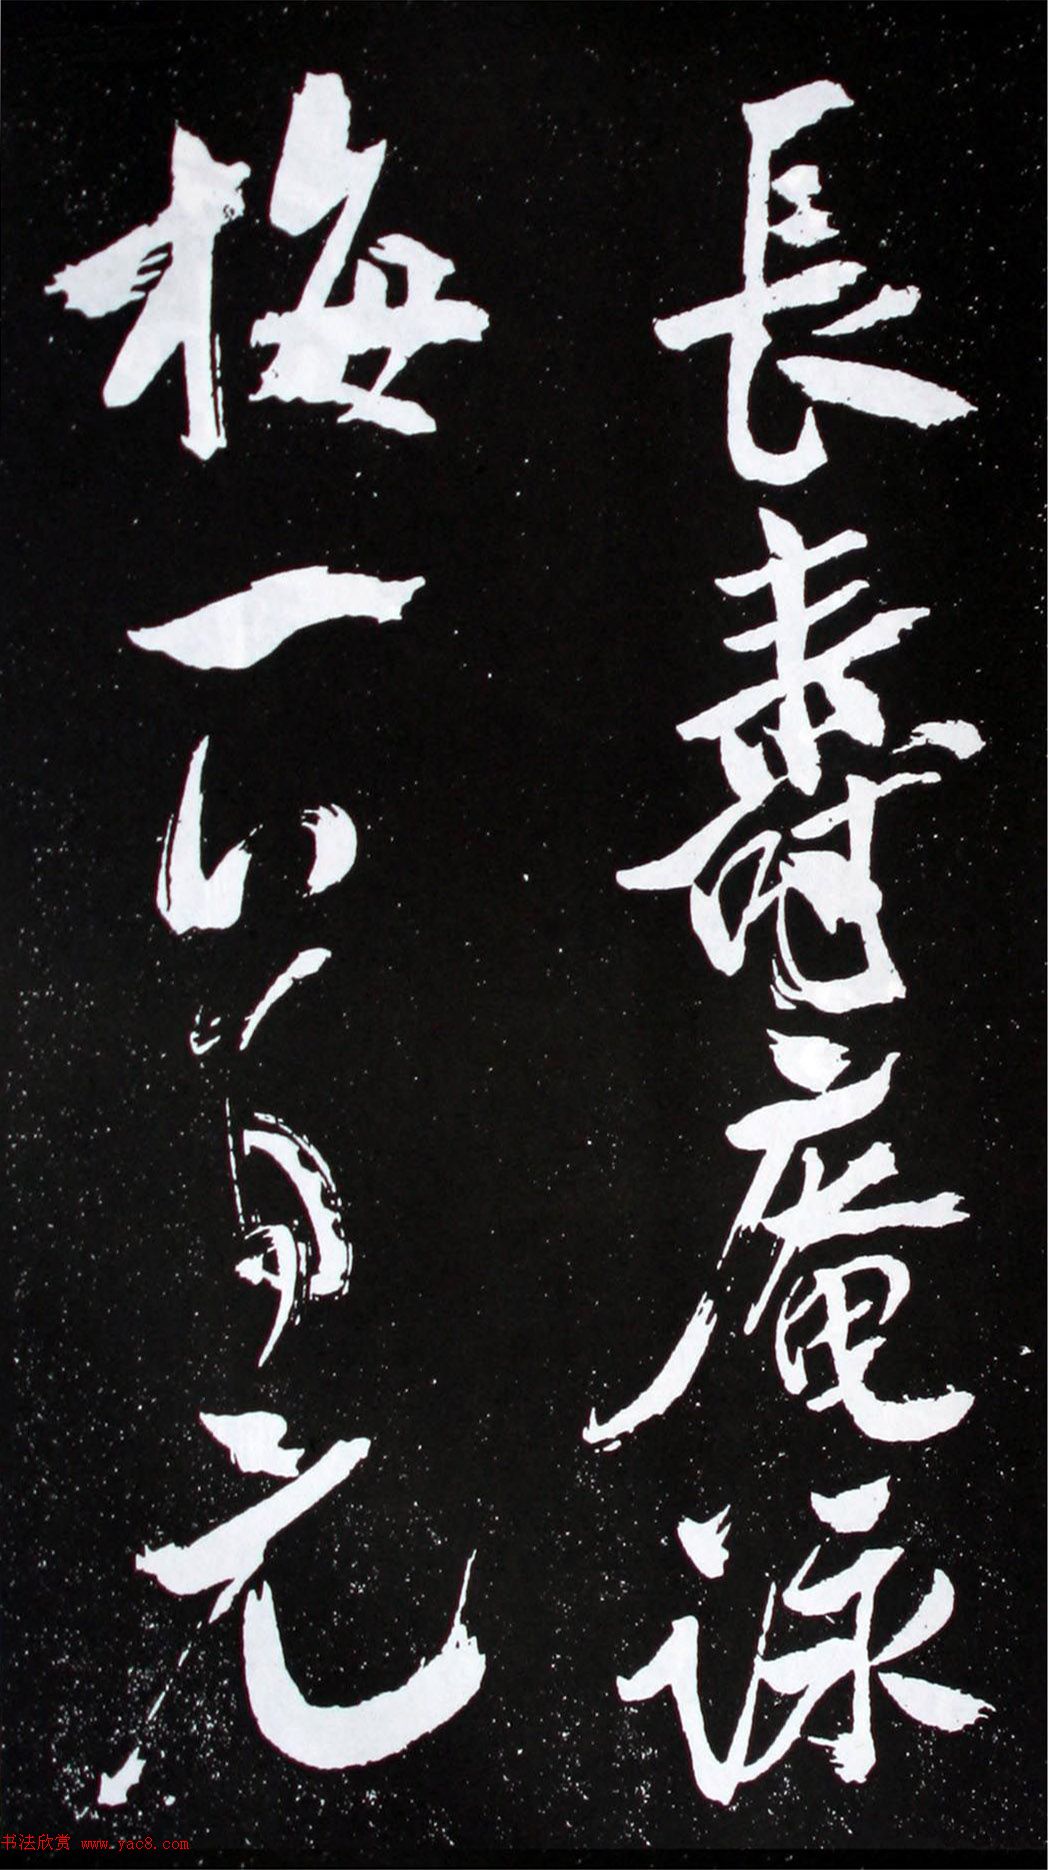 長壽庵詠
梅一元
书法欣赏 www.yac8.com